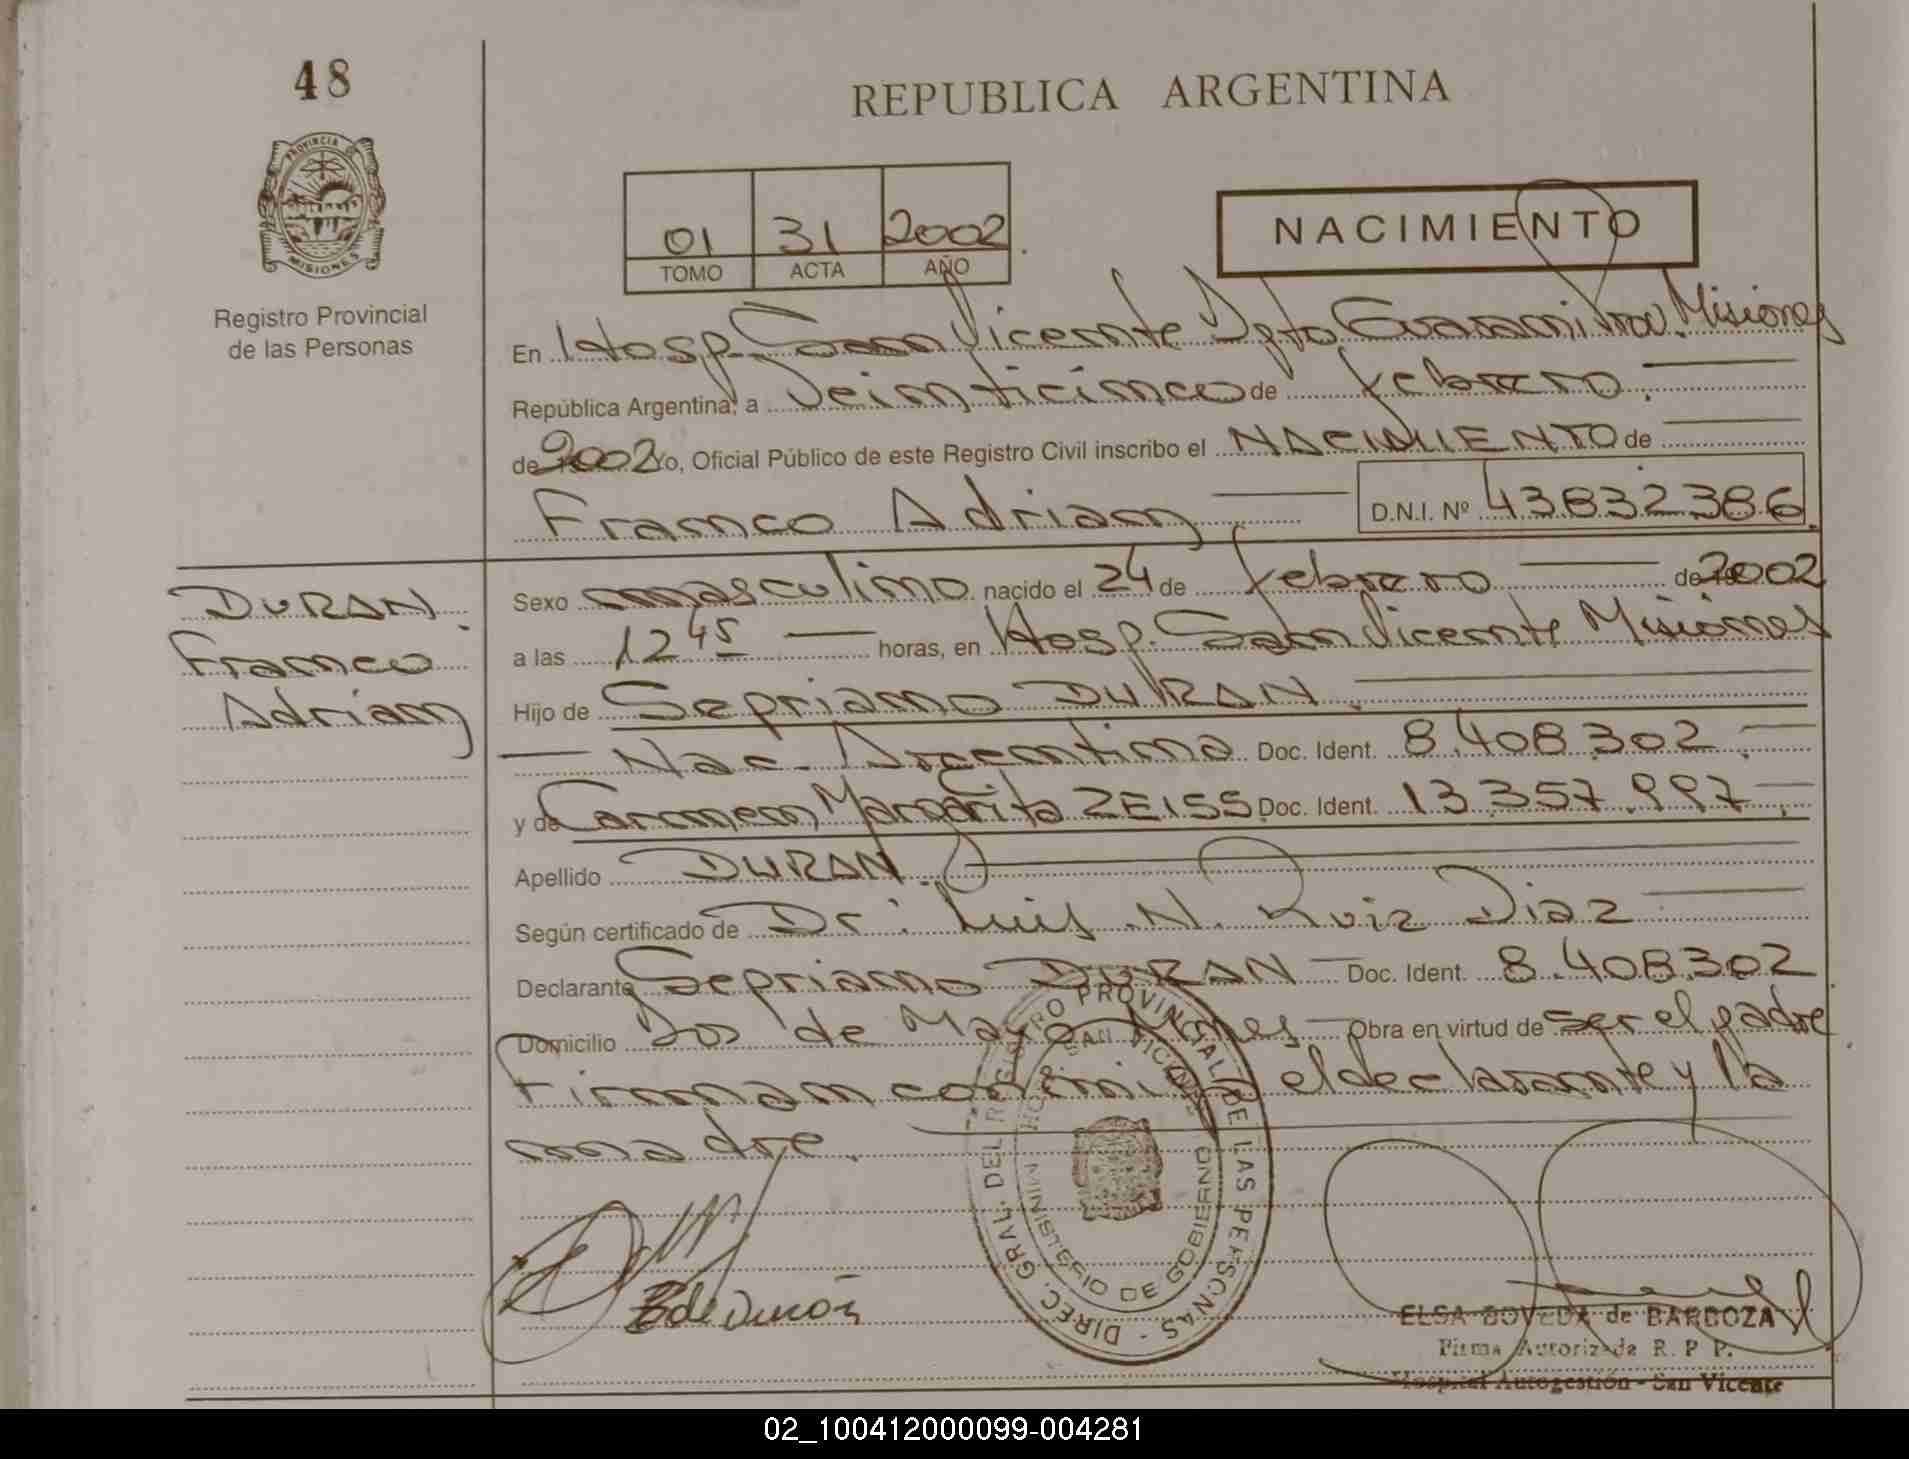 48
REPUBLICA ARGENTINA
PROVINCIA DE
MISIONES
Registro Provincial
de las Personas
01 31 2002
TOMO ACTA AÑO
NACIMIENTO
En Hosp. San Vicente Dpto Guaraní Prov. Misiones
República Argentina, a Veinticinco de febrero.
de 2002 Yo, Oficial Público de este Registro Civil inscribo el NACIMIENTO de
Franco Adrian D.N.I. Nº 43832386.
DURAN.
Franco
Adrian
Sexo masculino nacido el 24 de febrero de 2002
a las 12 45 horas, en Hosp. San Vicente Misiones
Hijo de Sepriano DURAN.
Nac. Argentina Doc. Ident. 8.408.302.
y de Carmen Margarita ZEISS Doc. Ident. 13.357.997.
Apellido DURAN.
Según certificado de Dr: Luis N. Ruiz Diaz
Declarante Sepriano DURAN Doc. Ident. 8.408.302
Domicilio Dos de Mayo Mnes Obra en virtud de ser el padre
Firman conmigo el declarante y la
madre.
DIREC. GRAL. DEL REGISTRO PROVINCIAL DE LAS PERSONAS
SAN VICENTE
MINISTERIO DE GOBIERNO
Z de Durán
ELSA BOVEDA de BARBOZA
Firma Autorizada R. P. P.
Hospital Autogestión - San Vicente
02_100412000099-004281